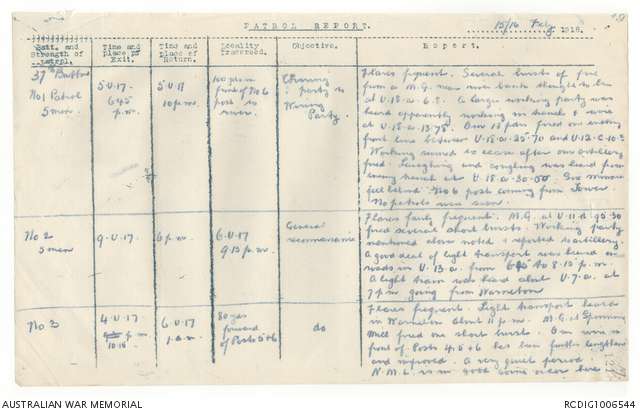 PATROL REPORT.
15/16 Feby 1918.
Batt. and Strength of Patrol.
Time and place of Exit.
Time and place of Return.
Locality Traversed.
Objective.
Report.
37th Battn
No 1 Patrol
5 men
5.U.17.
6.45
p.m.
5.U.17
10 p.m.
100 yds in
front of No 6
post to
river.
Covering
party to
Wiring
Party.
Flares frequent. Several bursts of fire
from a M.G. near river bank thought to be
at U.18.a.6.8. A large working party was
heard apparently working in trench & wire
at U.18.a.13.75. Our 18 pdrs fired on enemy
front line between U.18.a.25.70 and U.12.c.10.3
Working seemed to cease after our artillery
fired. Laughing and coughing was heard from
enemy trench at U.18.a.30.50.
fell behind No 6 post coming from
No patrols were seen.
No 2
5 men
9.U.17.
6 p.m.
6.U.17
9.15 p.m.
General
reconnaissance
Flares fairly frequent. M.G. at U.11.d.90.30
fired several short bursts. Working party
mentioned above noted & reported to artillery.
A good deal of light transport was heard on
roads in U.13.a. from 6.45 to 8.15 p.m.
A light train was heard about U.7.a. at
7 p.m. going from Warneton
No 3
4.U.17
p.m.
10.15
6.U.17
1 a.m.
80 yds
forward
of Posts 5 & 6
do
Flares frequent. Light transport heard
in Warneton about 11 p.m. M.G. at
Mill fired one short burst. Our wire in
front of Posts 4, 5 & 6 has been further lengthened
and improved. A very quiet period.
N.M.L. is in good going near here
AUSTRALIAN WAR MEMORIAL
RCDIG1006544